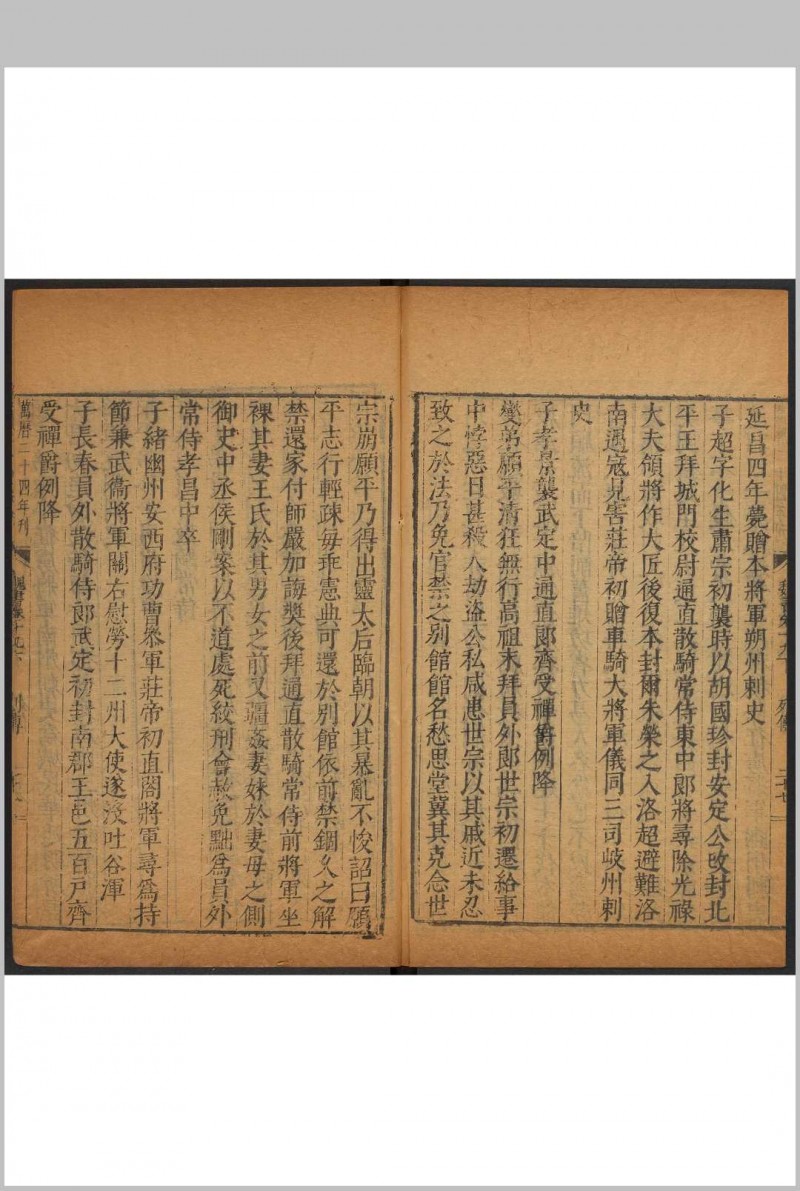 延昌四年薨贈本將軍朔州刺史
子超字化生肅宗初襲時以胡國珍封安定公改封北
平王拜城門校尉通直散騎常侍東中郎將尋除光祿
大夫領將作大匠後復本封爾朱榮之入洛超避難洛
南遇寇見害莊帝初贈車騎大將軍儀同三司岐州刺
史
子孝景襲武定中通直郎齊受禪爵例降
燮弟願平清狂無行高祖末拜員外郎世宗初遷給事
中悖惡日甚殺人劫盜公私咸患世宗以其戚近未忍
致之於法乃免官禁之别館館名愁思堂冀其克念世
宗崩願平乃得出靈太后臨朝以其暴亂不悛詔曰願
平志行輕疎每乖憲典可還於别館依前禁錮久之解
禁還家付師嚴加誨奬後拜通直散騎常侍前將軍坐
裸其妻王氏於其男女之前又彊姦妻妹於妻母之側
御史中丞侯剛案以不道處死絞刑會赦免黜爲員外
常侍孝昌中卒
子緒幽州安西府功曹參軍莊帝初直閤將軍尋爲持
節兼武衛將軍關右慰勞十二州大使遂没吐谷渾
子長春員外散騎侍郎武定初封南郡王邑五百戸齊
受禪爵例降
萬曆二十四年刊
魏書卷十九下
列傳